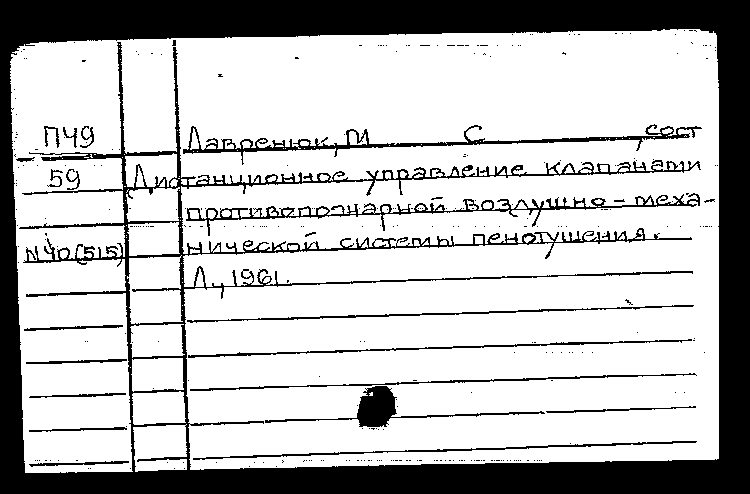 П49 Лавренюк, М С , сост
59 Дистанционное управление клапанами
противопожарной воздушно-меха-
N40(515) нической системы пенотушения.
Л., 1961.